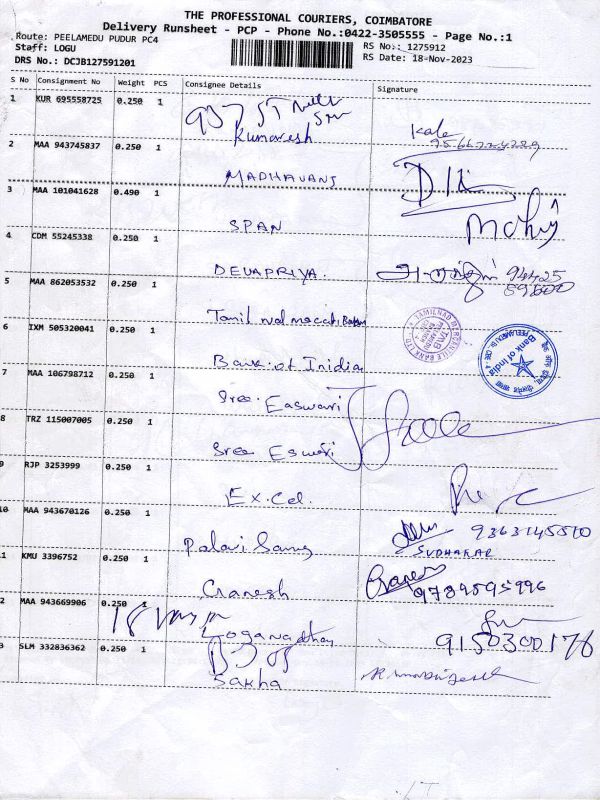 THE PROFESSIONAL COURIERS, COIMBATORE
Delivery Runsheet - PCP - Phone No.:0422-3505555 - Page No.:1
Route: PEELAMEDU PUDUR PC4
RS No.: 1275912
Staff: LOGU
RS Date: 18-Nov-2023
DRS No.: DCJB127591201
S No Consignment No Weight PCS Consignee Details Signature
1 KUR 695558725 0.250 1
Kumaresh
2 MAA 943745837 0.250 1
MADHAVANS
3 MAA 101041628 0.490 1
SPAN
4 CDM 55245338 0.250 1
DEVAPRIYA. 94425
89600
5 MAA 862053532 0.250 1
Tamil nad
TAMILNAD MERCANTILE BANK LTD
6 IXM 505320041 0.250 1
Bank of Inidia
Bank of India
7 MAA 106798712 0.250 1
Sree. Easwari
8 TRZ 115007005 0.250 1
Sree Eswari
9 RJP 3253999 0.250 1
Ex.Cel.
10 MAA 943670126 0.250 1
9363145510
SUDHAKAR
11 KMU 3396752 0.250 1
Ganesh
9789595996
2 MAA 943669906 0.250 1
Loganadhan
9150300176
3 SLM 332836362 0.250 1
Sakha